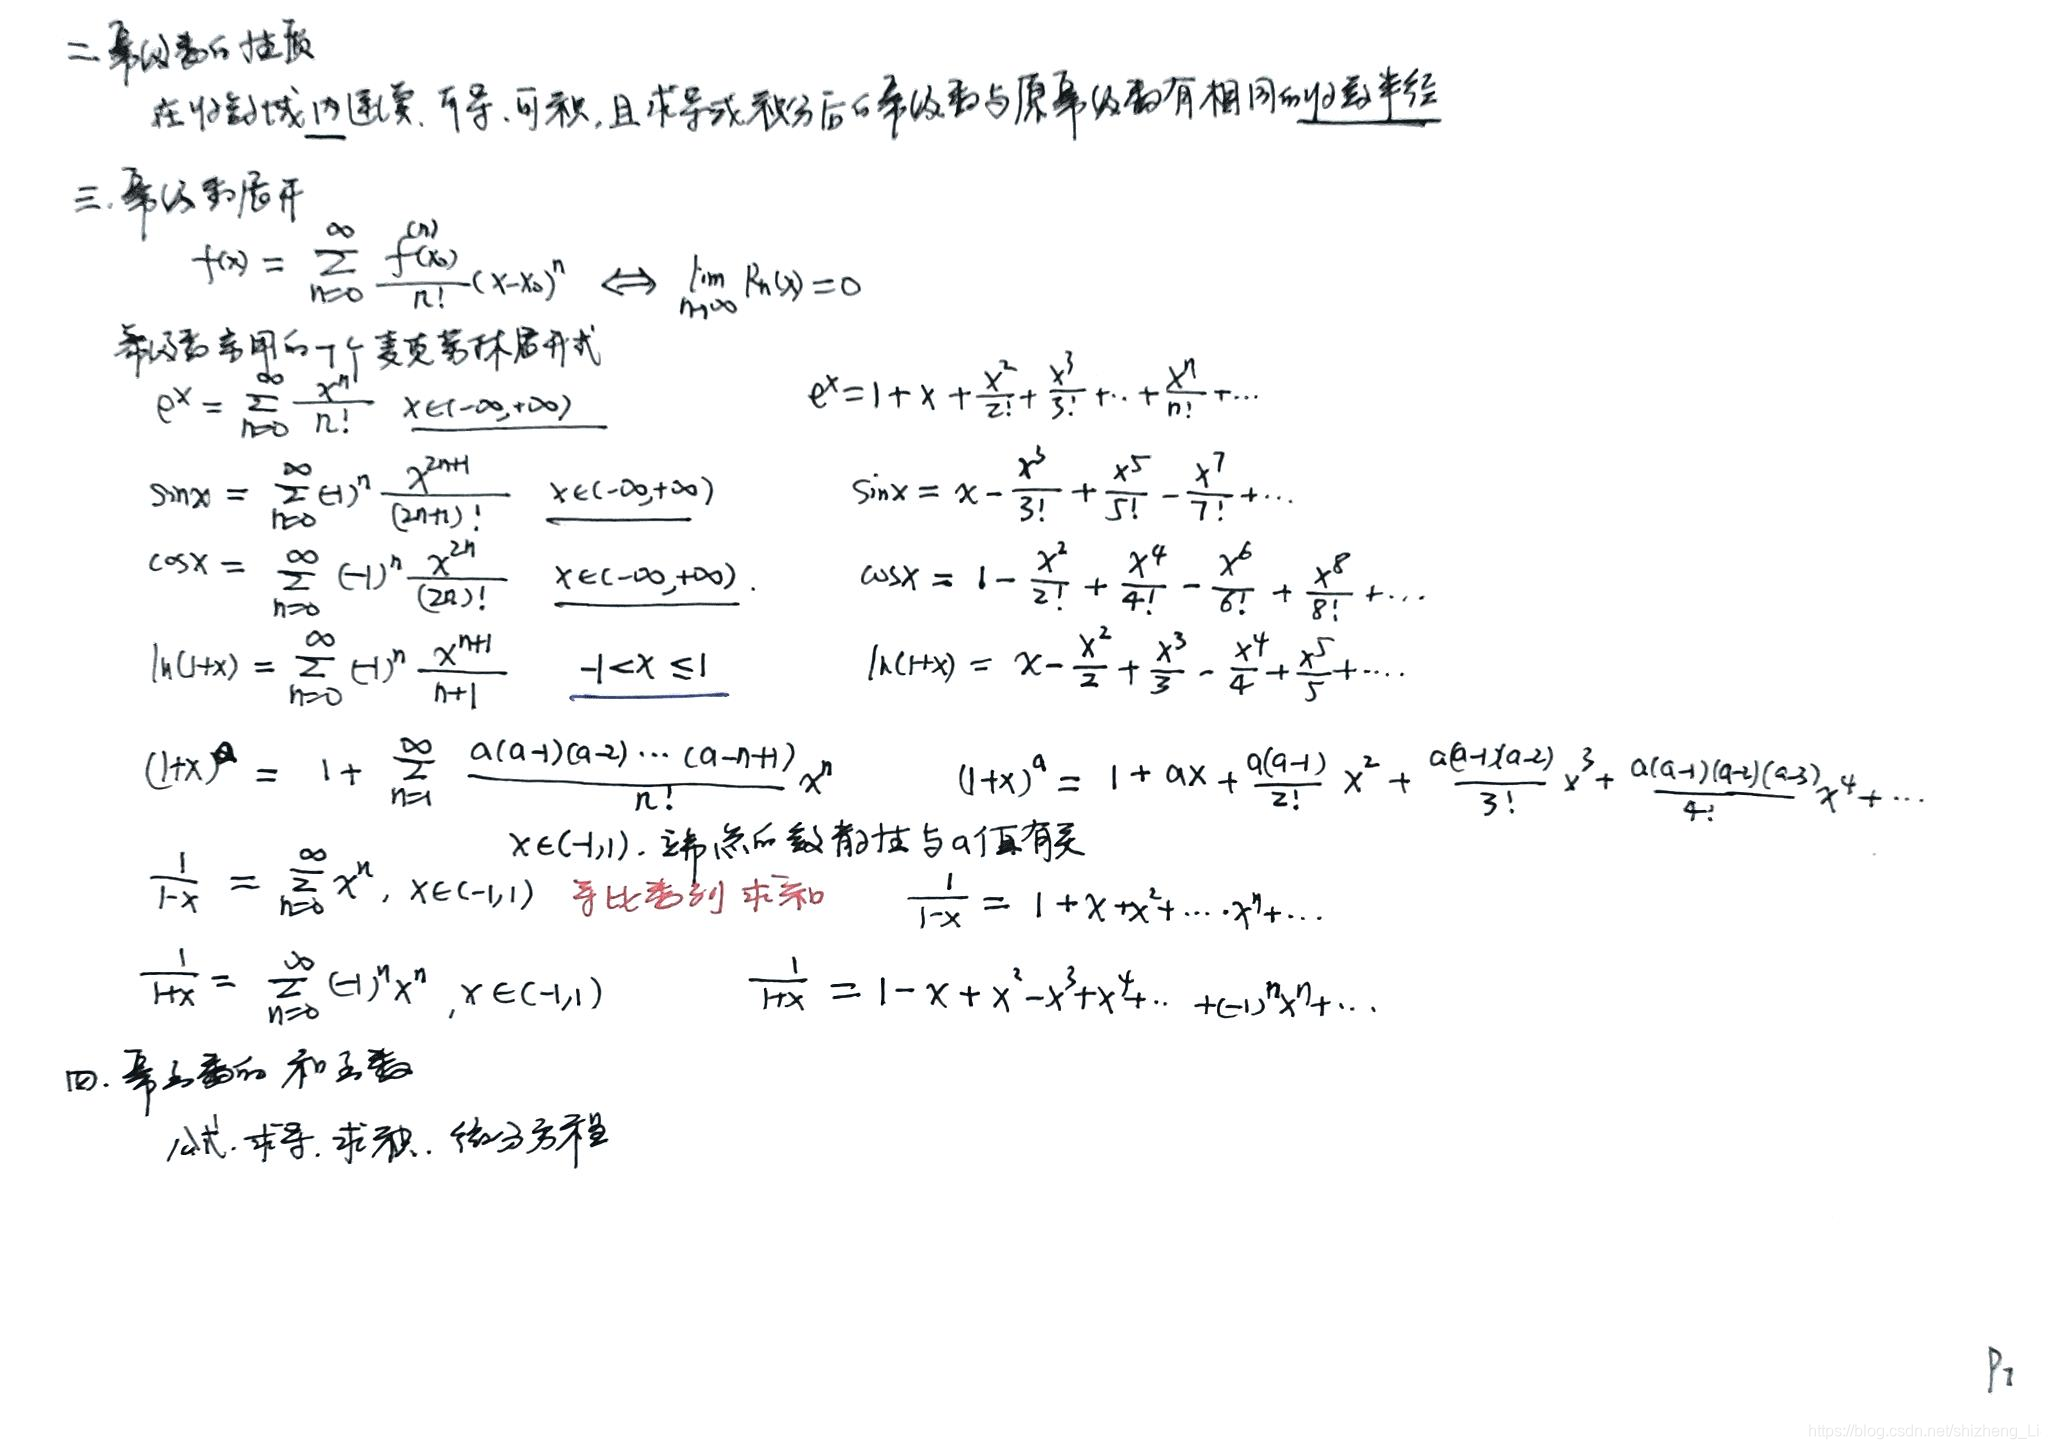 二. 幂级数的性质
在收敛域内连续、可导、可积,且求导或积分后的幂级数与原幂级数有相同的收敛半径
三. 幂级数展开
f(x) = ∑_{n=0}^{∞} f^{(n)}(x₀)/n! (x-x₀)^n ⇔ lim_{n→∞} Rn(x) = 0
幂级数常用的7个麦克劳林展开式
e^x = ∑_{n=0}^{∞} x^n/n! x∈(-∞,+∞) e^x = 1 + x + x²/2! + x³/3! + ... + x^n/n! + ...
sinx = ∑_{n=0}^{∞} (-1)^n x^{2n+1}/(2n+1)! x∈(-∞,+∞) sinx = x - x³/3! + x⁵/5! - x⁷/7! + ...
cosx = ∑_{n=0}^{∞} (-1)^n x^{2n}/(2n)! x∈(-∞,+∞). cosx = 1 - x²/2! + x⁴/4! - x⁶/6! + x⁸/8! + ...
ln(1+x) = ∑_{n=0}^{∞} (-1)^n x^{n+1}/n+1 -1<x≤1 ln(1+x) = x - x²/2 + x³/3 - x⁴/4 + x⁵/5 + ....
(1+x)^a = 1 + ∑_{n=1}^{∞} a(a-1)(a-2)...(a-n+1)/n! x^n (1+x)^a = 1 + ax + a(a-1)/2! x² + a(a-1)(a-2)/3! x³ + a(a-1)(a-2)(a-3)/4! x⁴ + ...
x∈(-1,1). 端点的敛散性与a值有关
1/1-x = ∑_{n=0}^{∞} x^n, x∈(-1,1) 等比数列求和 1/1-x = 1 + x + x² + .... x^n + ...
1/1+x = ∑_{n=0}^{∞} (-1)^n x^n, x∈(-1,1) 1/1+x = 1 - x + x² - x³ + x⁴ + .. + (-1)^n x^n + ...
四. 幂函数的和函数
公式. 求导. 求积. 微分方程
P7
https://blog.csdn.net/shizheng_Li